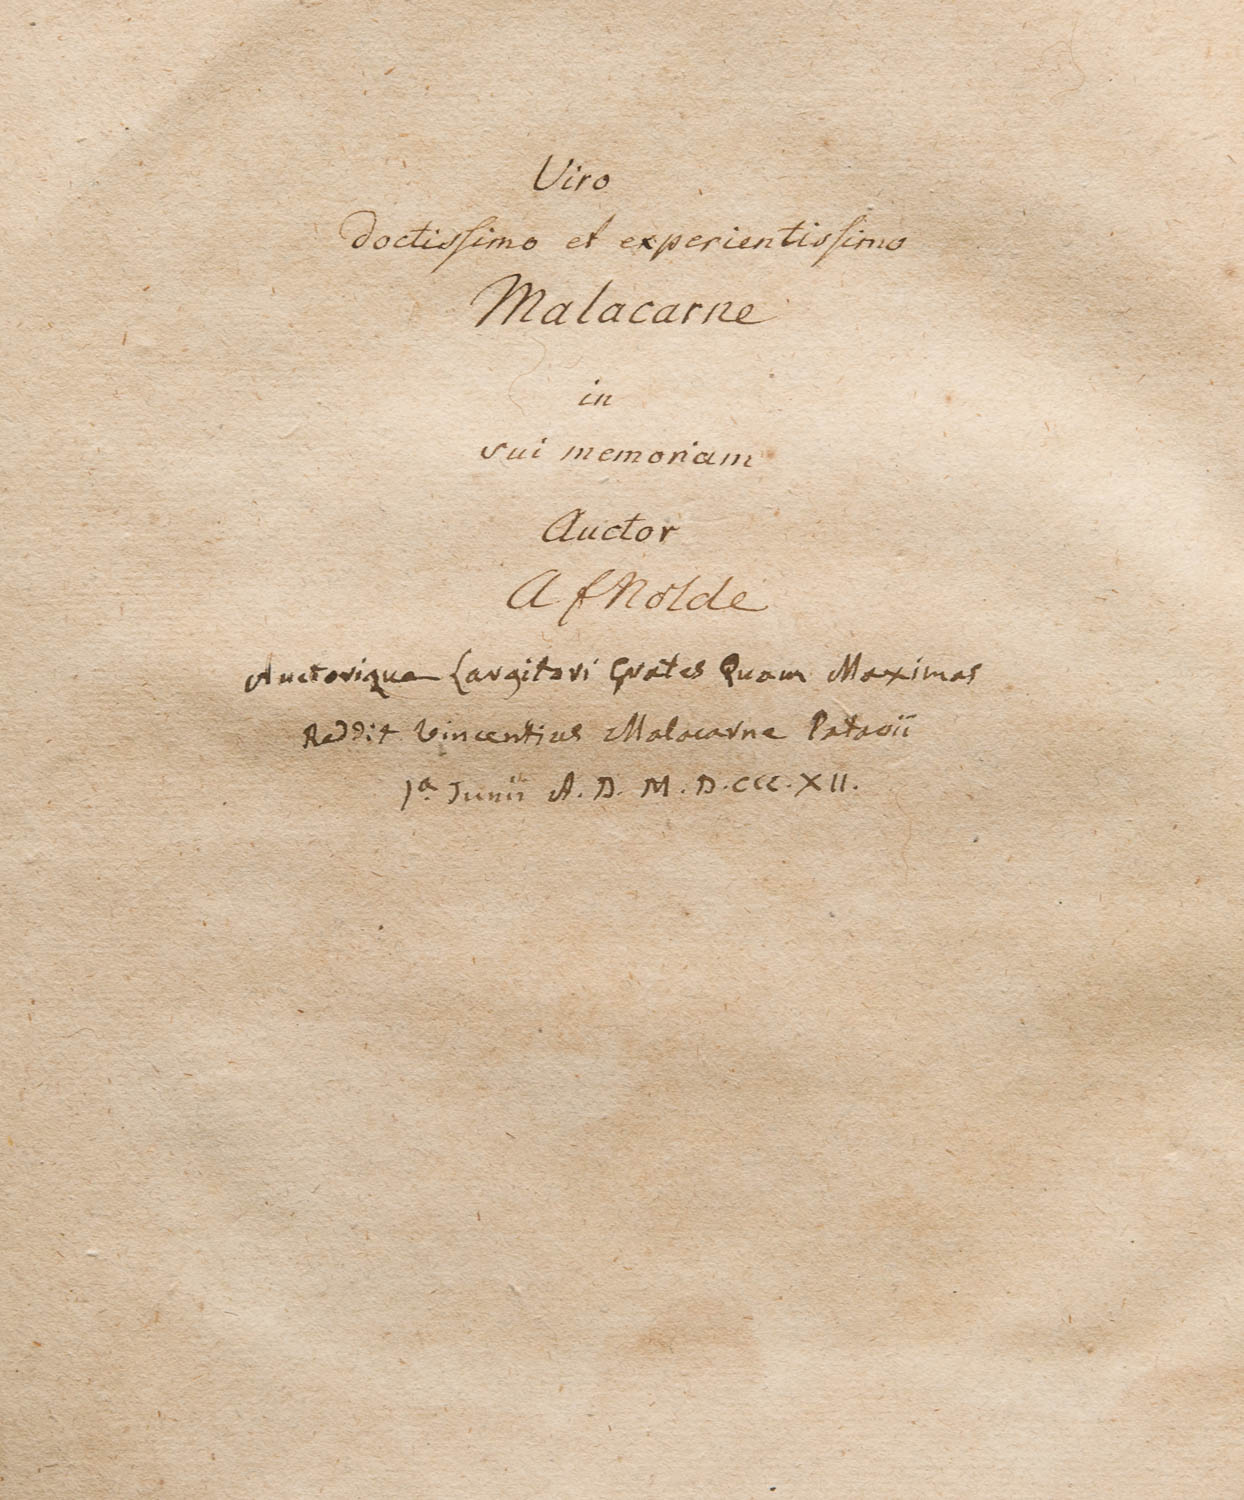 Viro
doctissimo et experientissimo
Malacarne
in
sui memoriam
Auctor
A f Nolde
Auctorique Largitori Grates Quam Maximas
Reddit Vincentius Malacarne Patavii
1ª. Junii A. D. M. D. CCC. XII.